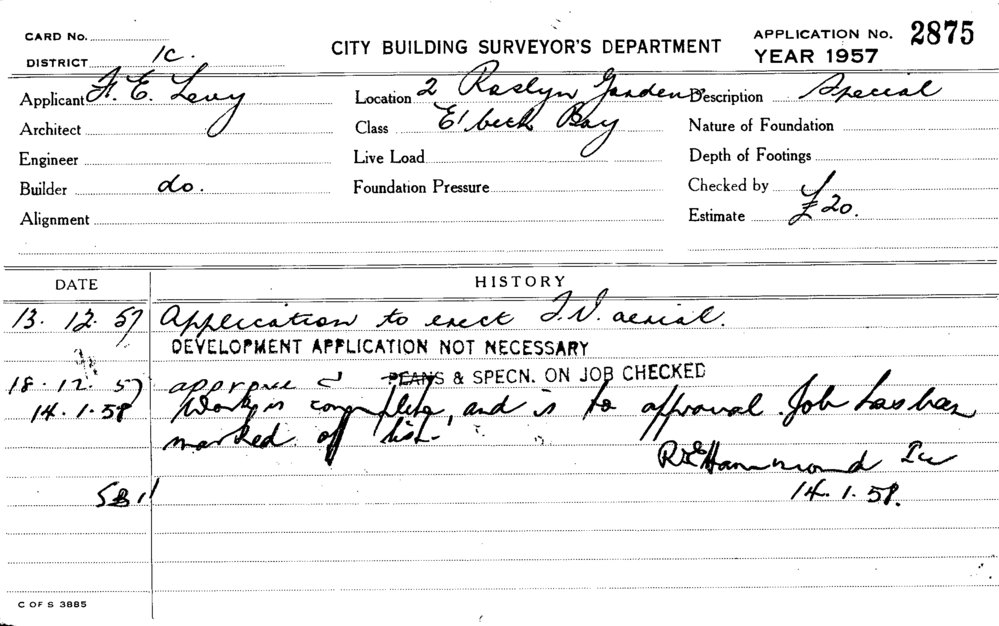 CARD No.
DISTRICT 1C.
CITY BUILDING SURVEYOR'S DEPARTMENT
APPLICATION No. 2875
YEAR 1957
Applicant F. E. Levy
Location 2 Roslyn Gardens
Description Special
Architect
Class El. beth Bay
Nature of Foundation
Engineer
Live Load
Depth of Footings
Builder do.
Foundation Pressure
Checked by
Alignment
Estimate £20.
DATE HISTORY
13. 12. 57 Application to erect T.V. aerial.
DEVELOPMENT APPLICATION NOT NECESSARY
18. 12. 57 approve PLANS & SPECN. ON JOB CHECKED
14. 1. 58 Work is complete, and is to approval. Job has been
marked off list.
R E Hammond
14. 1. 58.
C OF S 3885